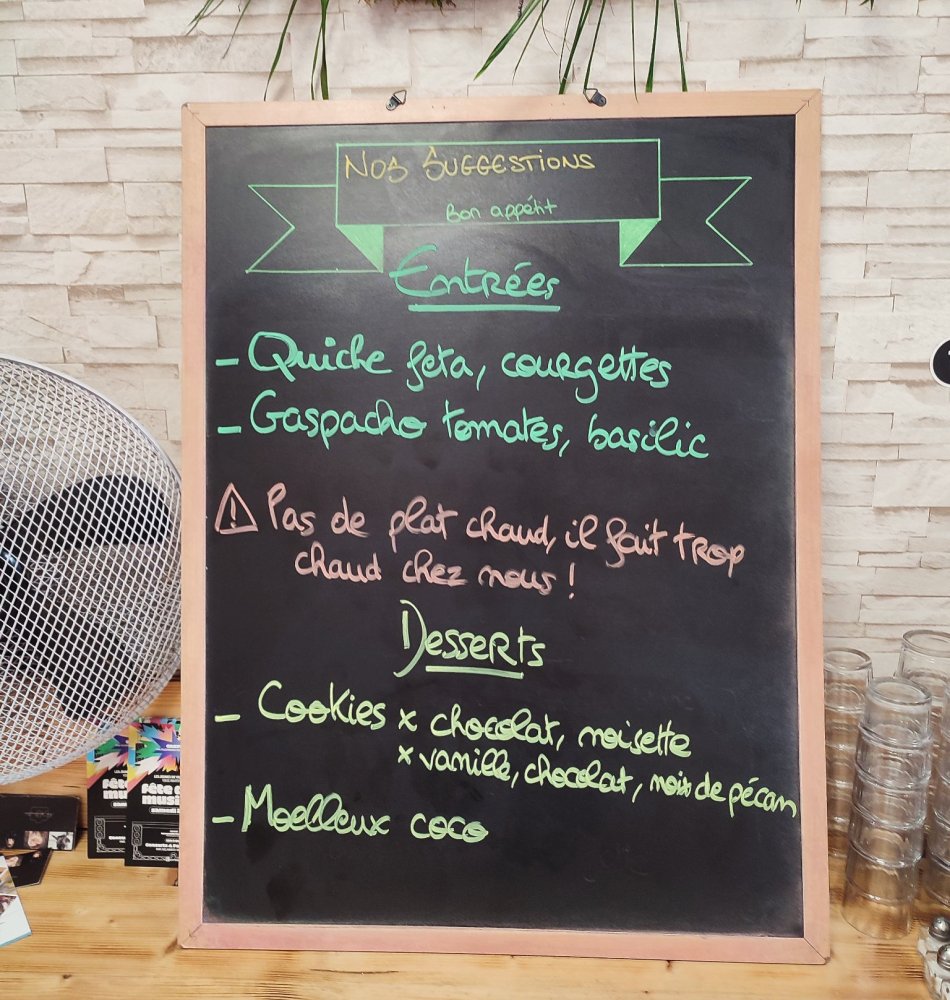 Nos Suggestions
Bon appétit
Entrées
- Quiche feta, courgettes
- Gaspacho tomates, basilic
⚠ Pas de plat chaud, il fait trop
chaud chez nous !
Desserts
- Cookies x chocolat, noisette
x vanille, chocolat, noix de pécan
- Moelleux coco